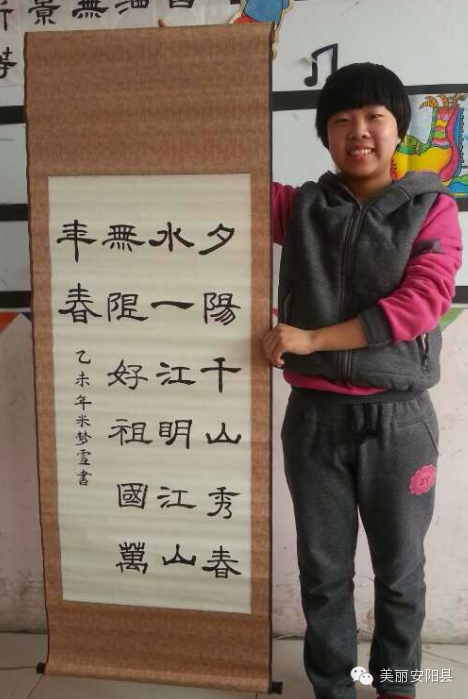 景無
夕陽千山秀春
水一江明江山
無限好祖國萬
年春
乙未年米梦雪書
美丽安阳县